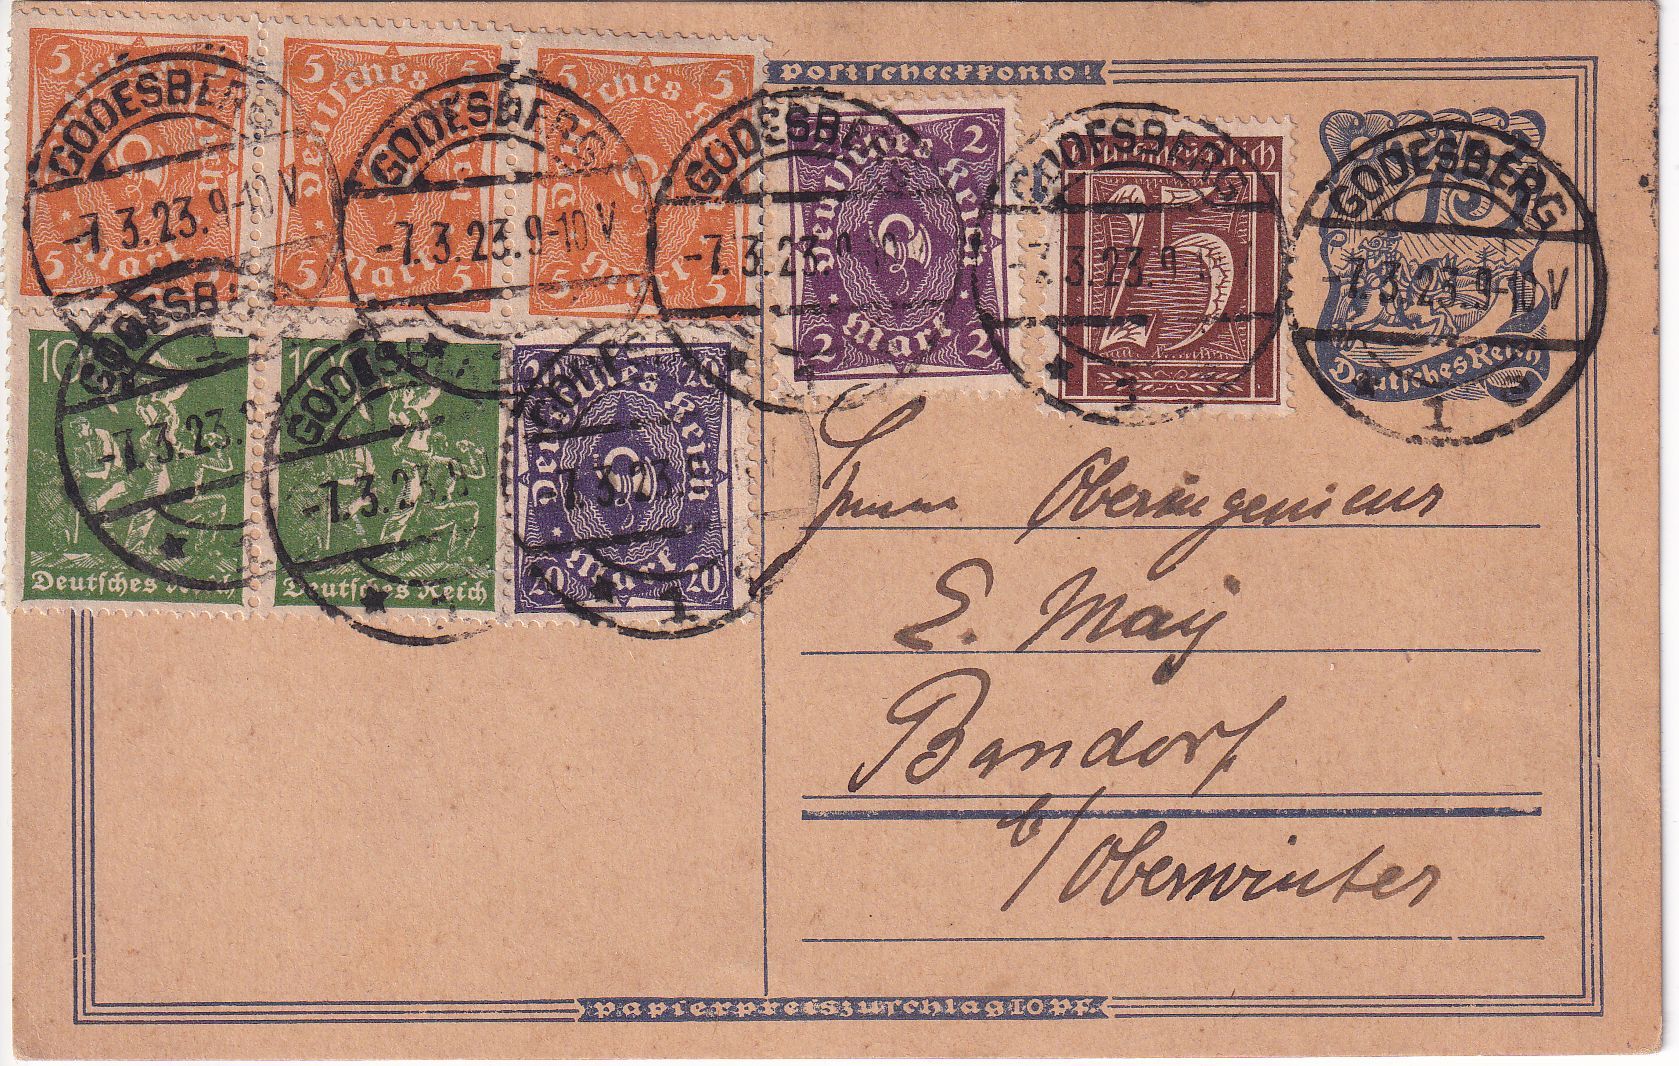 Postscheckkonto!
5 5 5 5
Deutsches Reich
Mark
5 5 5 5
Deutsches Reich
Mark
5 5 5 5
Deutsches Reich
Mark
2 2 2
Deutsches Reich
Mark
Deutsches Reich
25
15
Deutsches Reich
GODESBERG
-7.3.23.9-10V
GODESBERG
-7.3.23.9-10V
GODESBERG
-7.3.23.9-10
* 1
GODESBERG
-7.3.23.9-1
* 1
GODESBERG
-7.3.23.9-10V
* 1 e
10
Deutsches Reich
10
Deutsches Reich
20 20 20
Deutsches Reich
Mark
GODESB
-7.3.23.9-1
*
GODESBE
-7.3.23.9
* 1
GODES
-7.3.23
* 1
Herrn Oberingenieur
E. May
Bandorf
b/ Oberwinter
Papierpreiszuschlag 10 Pf.